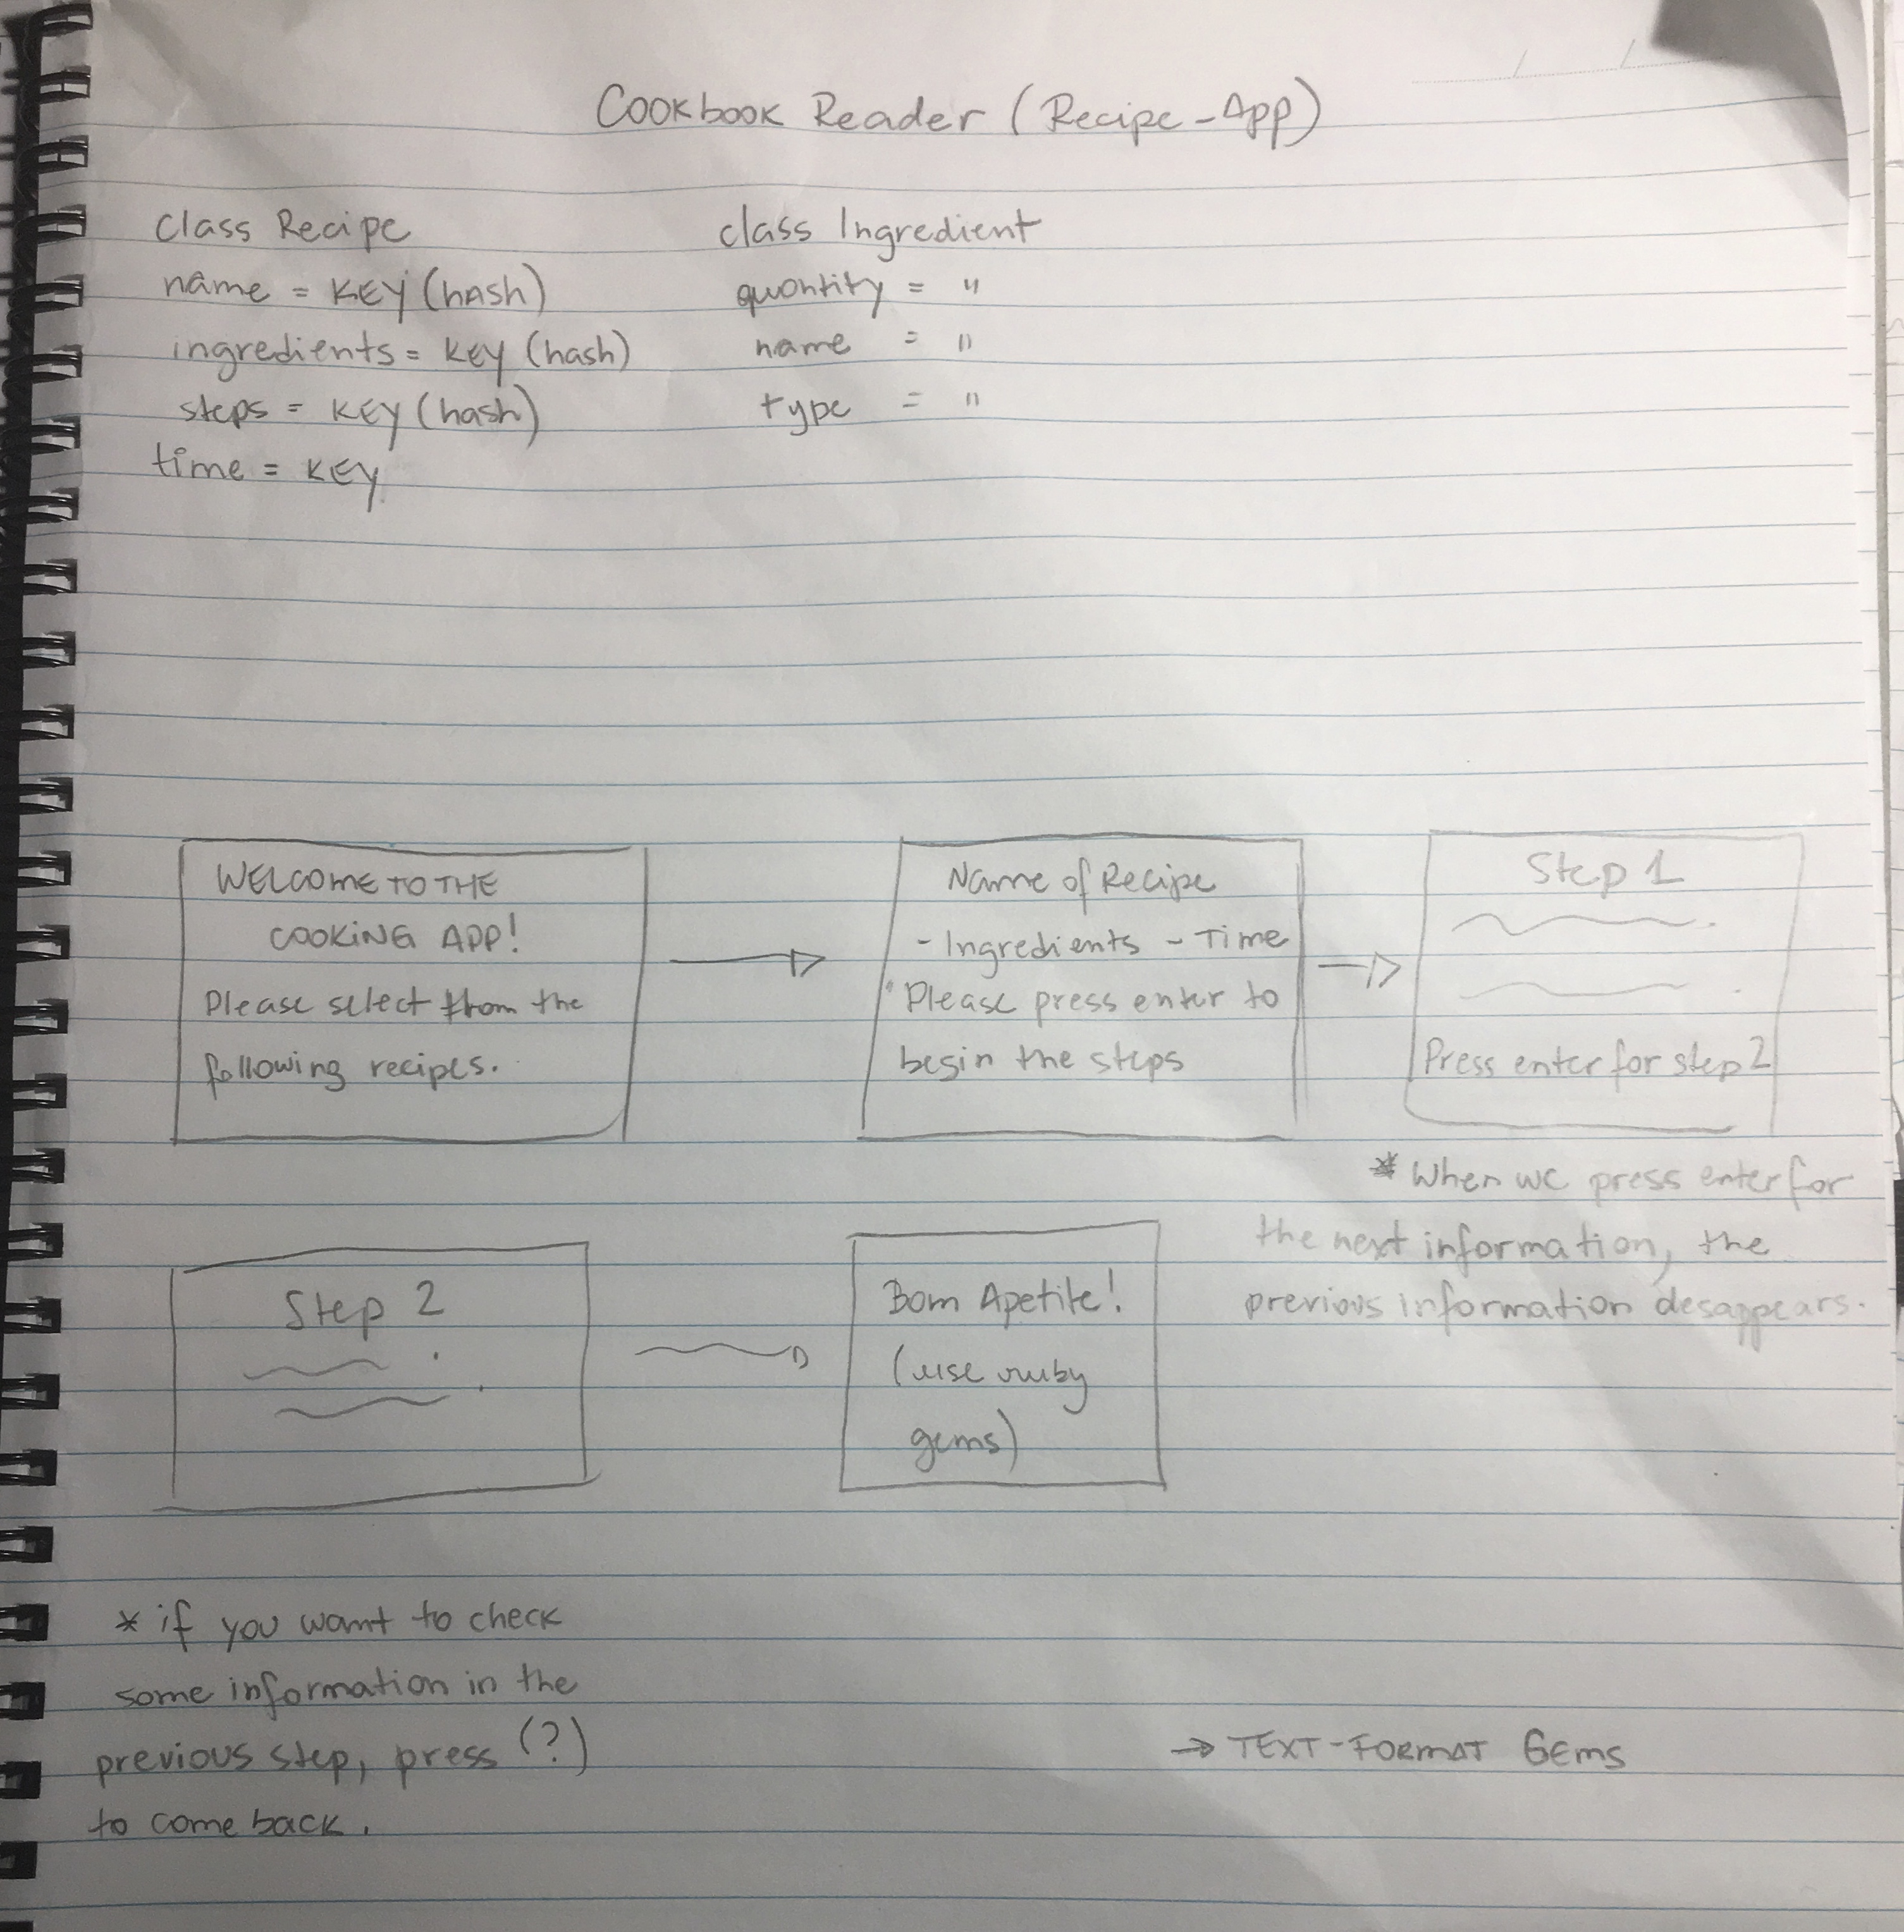 Cookbook Reader (Recipe-App)
class Recipe
name = KEY (hash)
ingredients = KEY (hash)
steps = KEY (hash)
time = KEY
class Ingredient
quantity = "
name = "
type = "
WELCOME TO THE
COOKING APP!
Please select from the
following recipes.
Name of Recipe
- Ingredients - Time
Please press enter to
begin the steps
Step 1
Press enter for step 2
* When we press enter for
the next information, the
previous information desappears.
Step 2
Bom Apetite!
(use ruby
gems)
* if you want to check
some information in the
previous step, press (?)
to come back.
→ TEXT-FORMAT GEMS